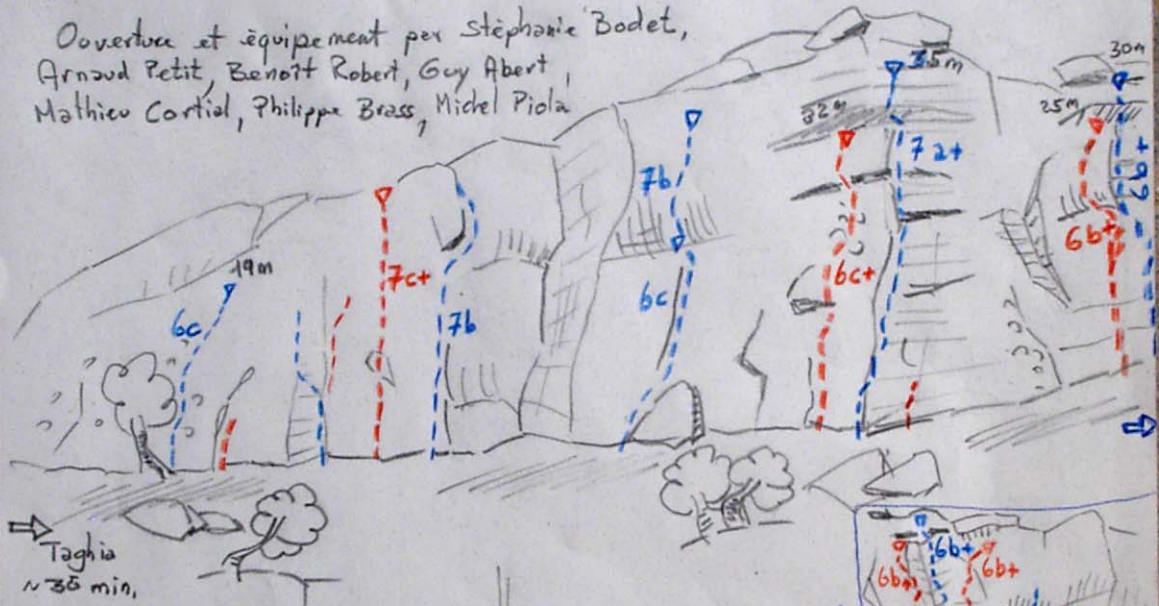 Ouverture et équipement par Stéphanie Bodet,
Arnaud Petit, Benoît Robert, Guy Abert,
Mathieu Cortial, Philippe Brass, Michel Piola
30m
35m
25m
32m
7a+
7b
6b+
19m
7c+
6c+
6c
6c
7b
Taghia
~35 min,
6b+
6b+